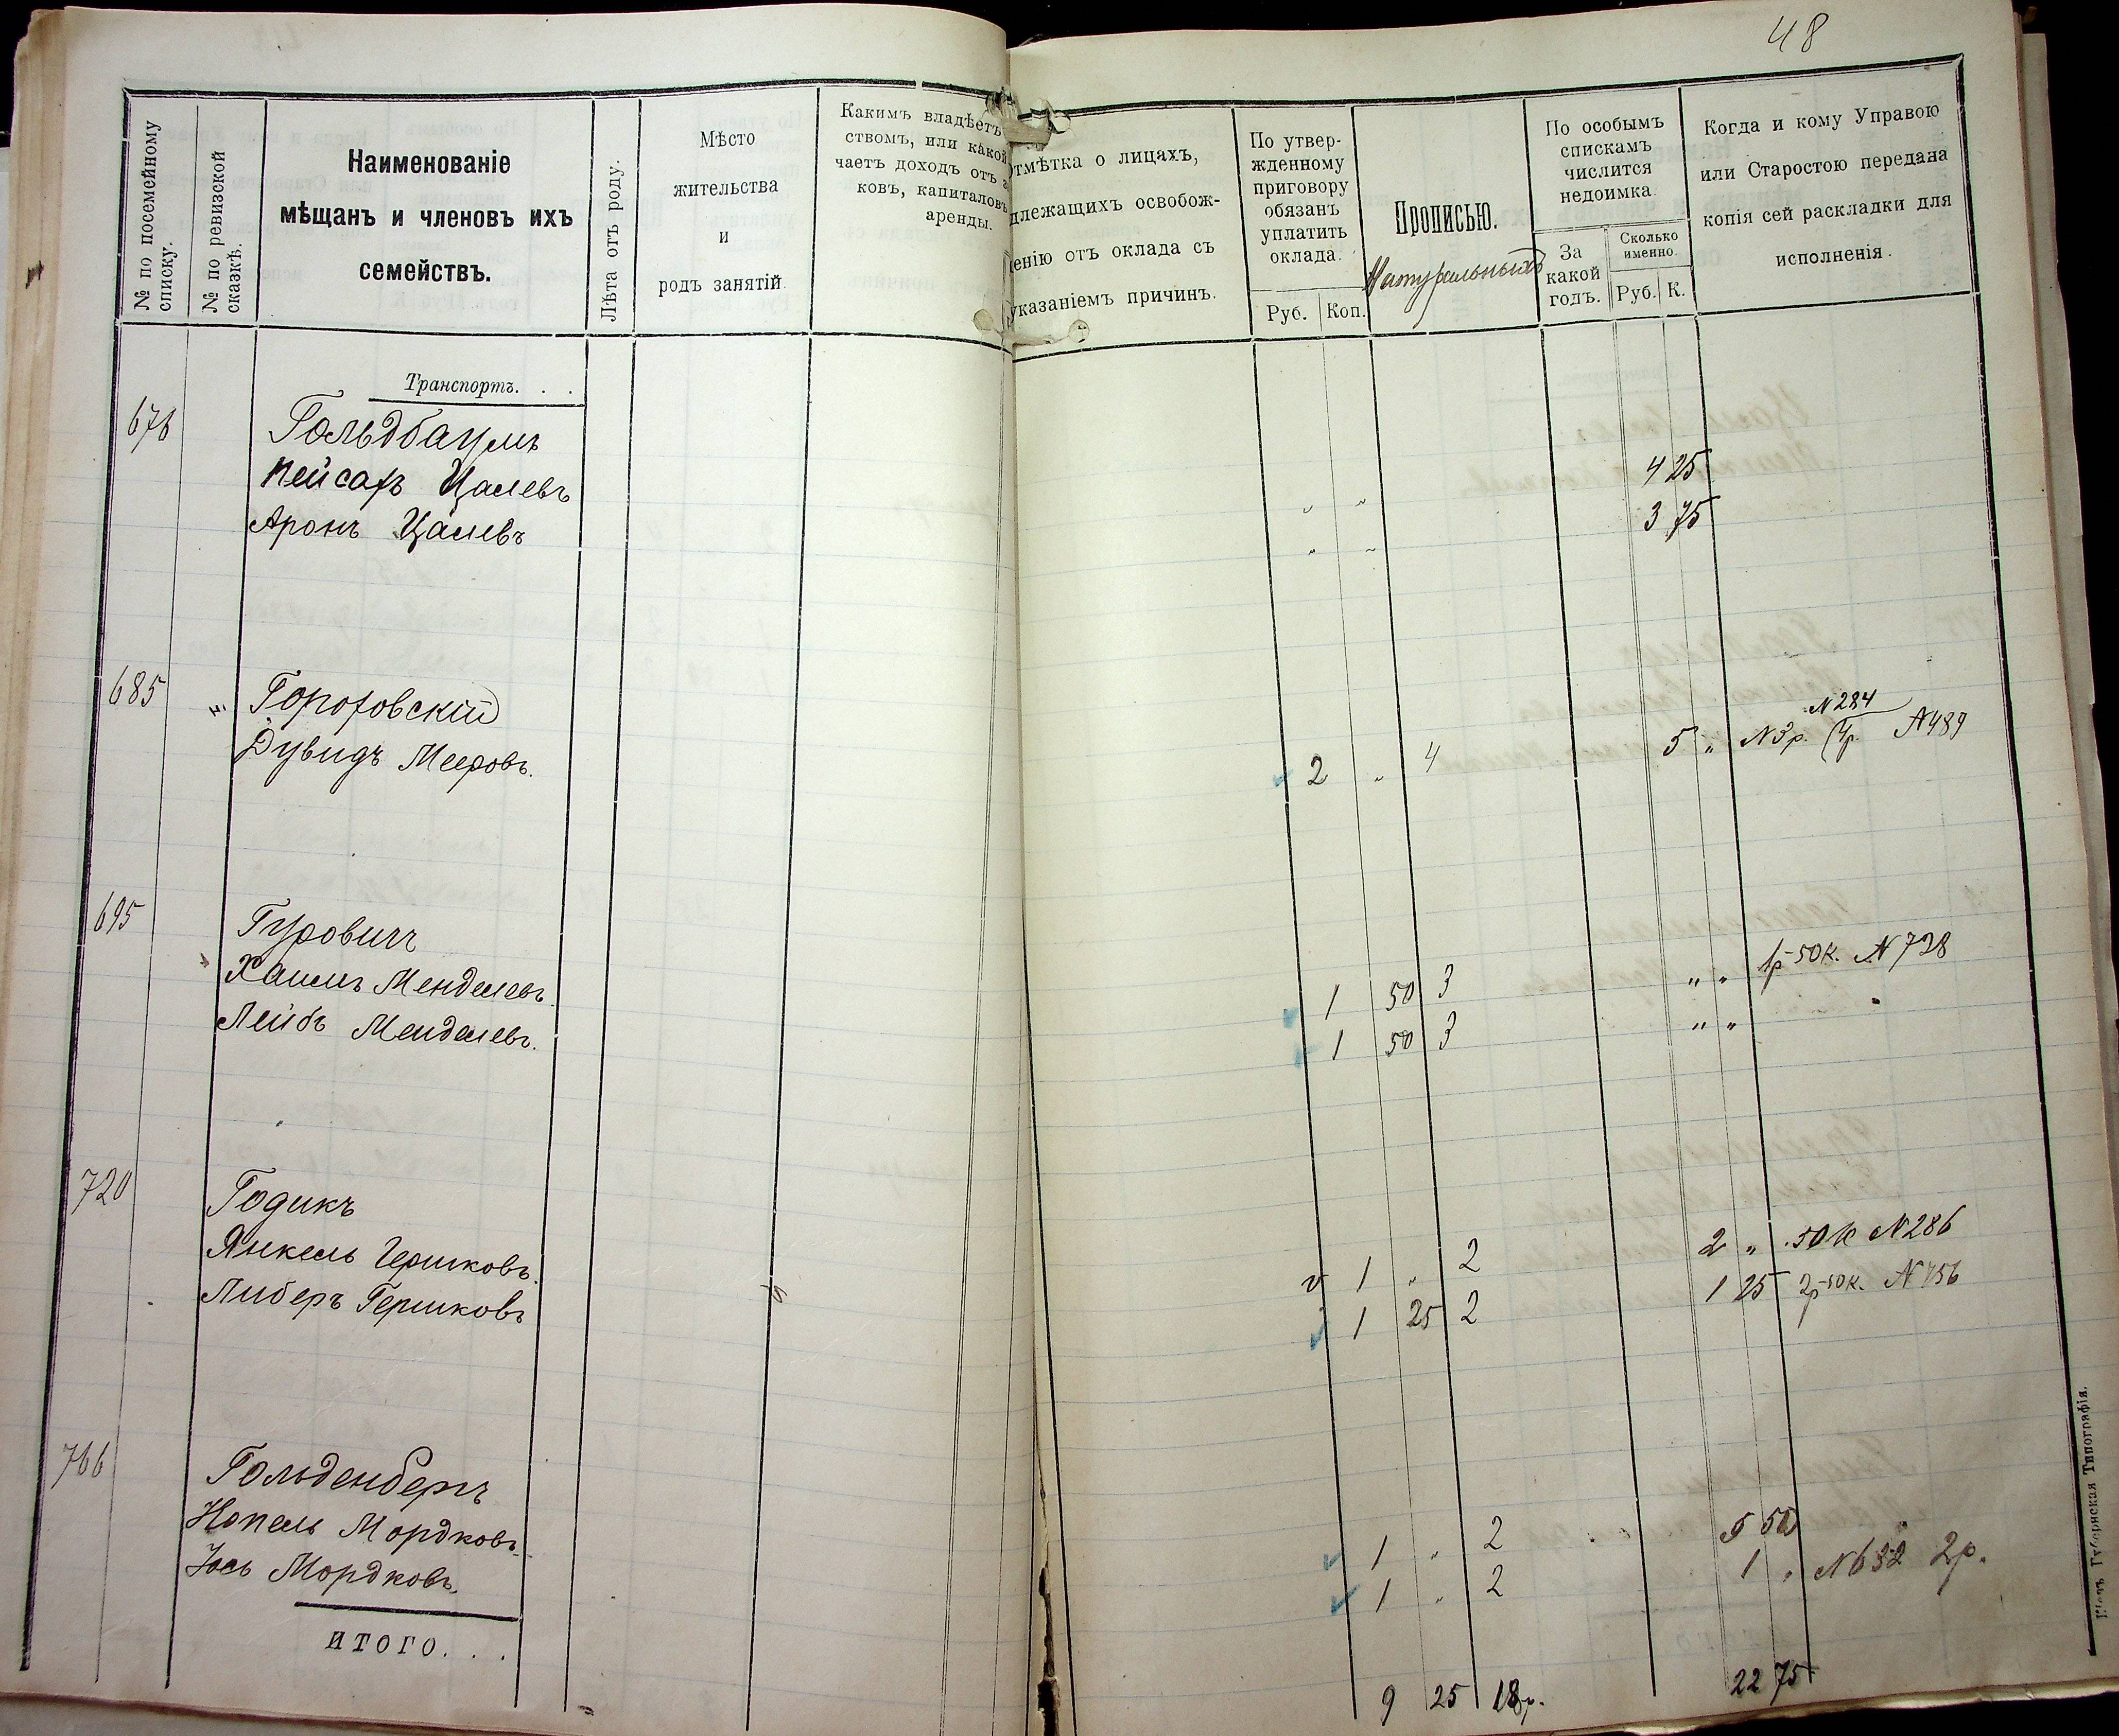 48
№ по посемейному списку.
№ по ревизской сказкѣ.
Наименованіе
мѣщанъ и членовъ ихъ
семействъ.
Лѣта отъ роду.
Мѣсто
жительства
и
родъ занятій.
Какимъ владѣетъ
ствомъ, или какой
чаетъ доходъ отъ
ковъ, капиталовъ
аренды.
Отмѣтка о лицахъ,
длежащихъ освобож-
денію отъ оклада съ
указаніемъ причинъ.
По утвер-
жденному
приговору
обязанъ
уплатить
оклада.
Руб. Коп.
Прописью.
Натуральныхъ
По особымъ
спискамъ
числится
недоимка.
За
какой
годъ.
Сколько
именно.
Руб. К.
Когда и кому Управою
или Старостою передана
копія сей раскладки для
исполненія.
Транспортъ. . .
676 Гольдбаумъ
Пейсахъ Цалевъ " " 4 25
Аронъ Цалевъ " " 3 75
685 Гороховскій
Дувидъ Мееровъ. 2 " 4 5 " N 3р. N284 1р. N489
695 Гуровичъ
Хаимъ Менделевъ. 1 50 3 " " 1р-50к. N728
Лейбъ Менделевъ. 1 50 3 " "
720 Годикъ
Янкель Гершковъ. v 1 " 2 2 " 50к N286
Либеръ Гершковъ 1 25 2 1 25 2р-50к. N756
766 Гольденбергъ
Копель Мордковъ. 1 " 2 5 50
Іось Мордковъ. 1 " 2 1 " N632 2р.
итого. . .
9 25 18р. 22 75
Кіевъ. Губернская Типографія.